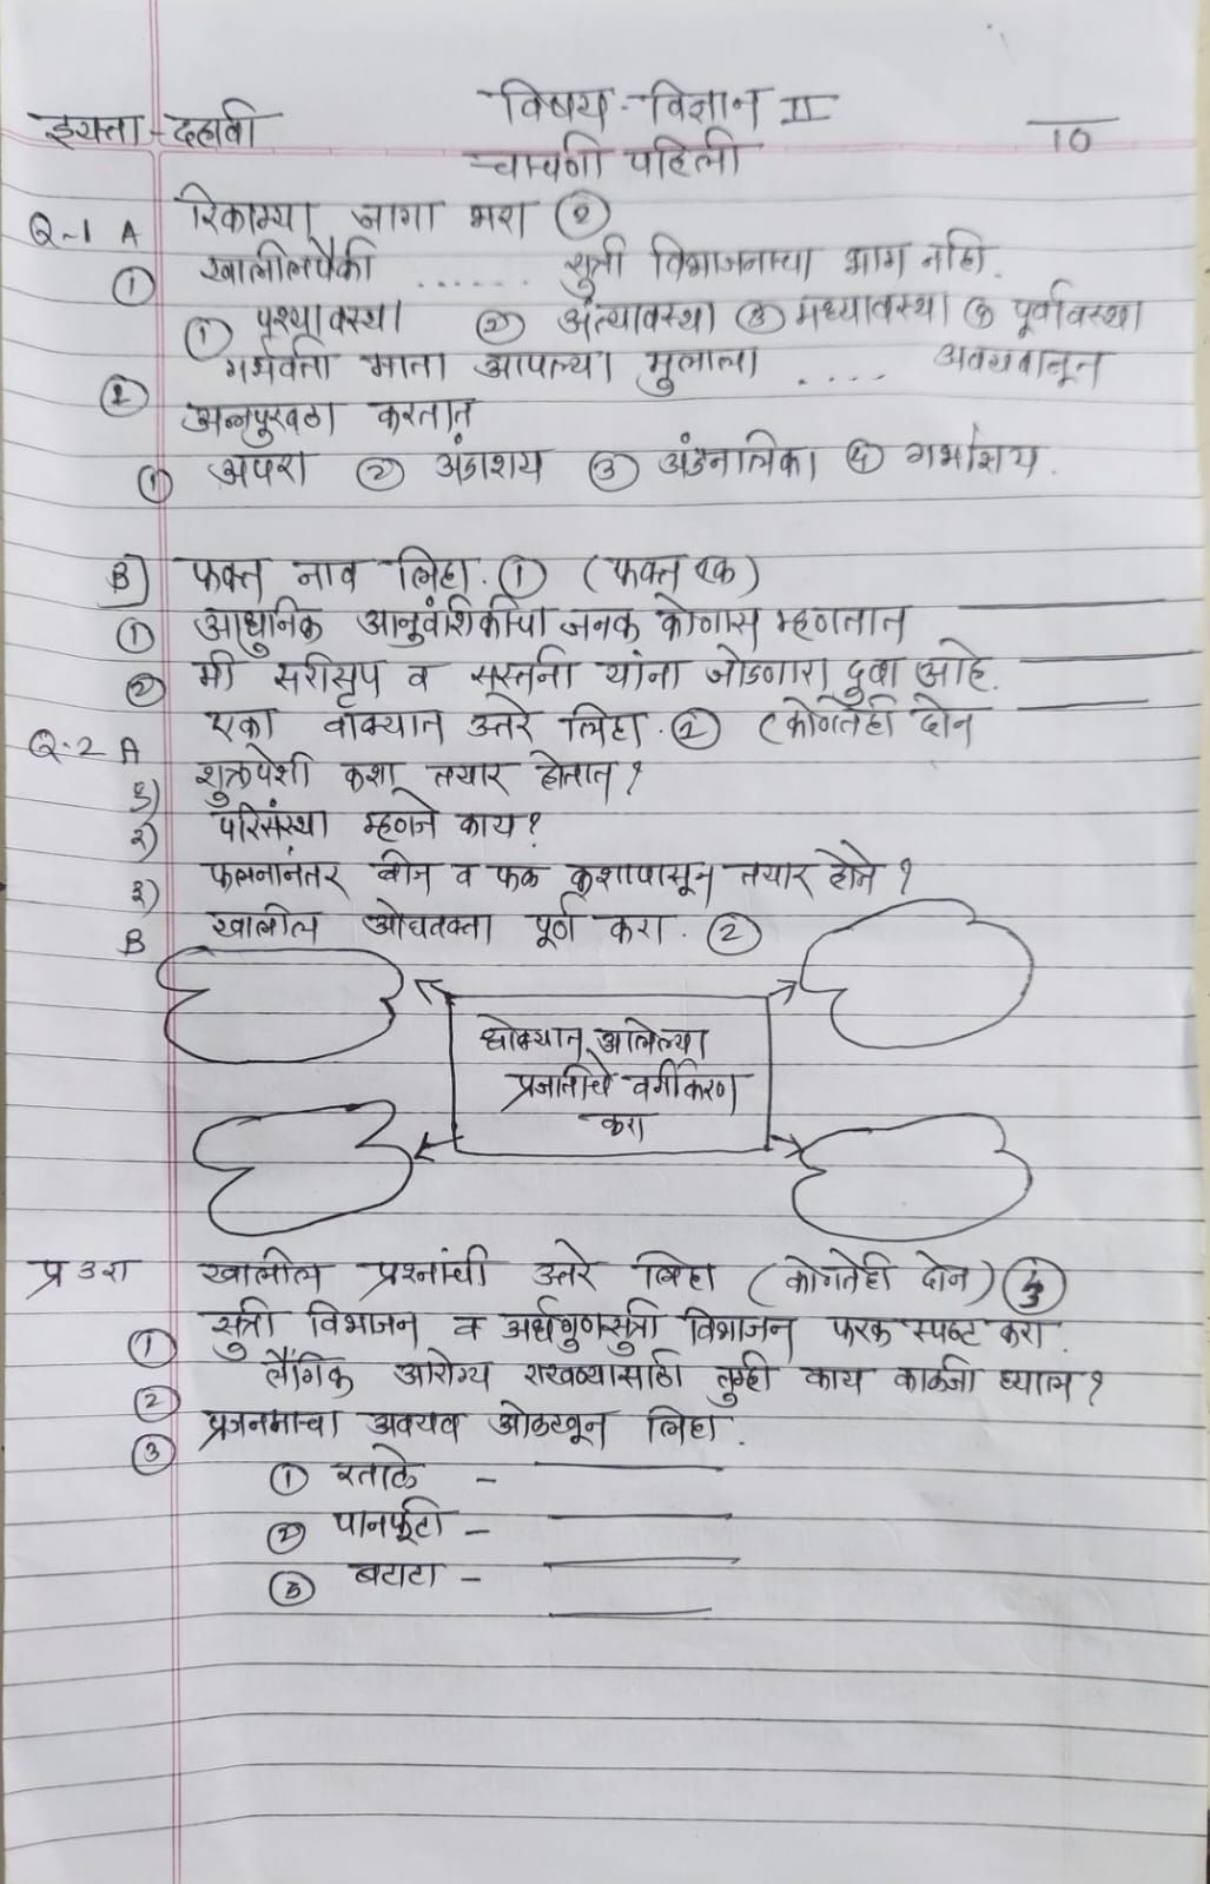 विषय - विज्ञान II
इयत्ता - दहावी
10
चाचणी पहिली
Q-1 A रिकाम्या जागा भरा ②
① खालीलपैकी ...... सुत्री विभाजनाचा भाग नाही.
① पश्चावस्था ② अंत्यावस्था ③ मध्यावस्था ④ पूर्वावस्था
② गर्भवती माता आपल्या मुलाला .... अवयवातून
अन्नपुरवठा करतात
① अपरा ② अंडाशय ③ अंडनलिका ④ गर्भाशय.
B] फक्त नाव लिहा. ① (फक्त एक)
① आधुनिक आनुवंशिकीचा जनक कोणास म्हणतात
② मी सरीसृप व सस्तनी यांना जोडणारा दुवा आहे.
Q.2 A एका वाक्यात उत्तरे लिहा. ② (कोणतेही दोन
१) शुक्रपेशी कशा तयार होतात?
२) परिसंस्था म्हणजे काय?
३) फलनानंतर बीज व फळ कशापासून तयार होते?
B खालील ओघतक्ता पूर्ण करा. ②
धोक्यात आलेल्या
प्रजातीचे वर्गीकरण
करा
प्र ३रा खालील प्रश्नांची उत्तरे लिहा (कोणतेही दोन)
① सुत्री विभाजन व अर्धगुणसुत्री विभाजन फरक स्पष्ट करा.
② लैंगिक आरोग्य राखण्यासाठी तुम्ही काय काळजी घ्याल?
③ प्रजननाचा अवयव ओळखून लिहा.
① रताळे -
② पानफुटी -
③ बटाटा -